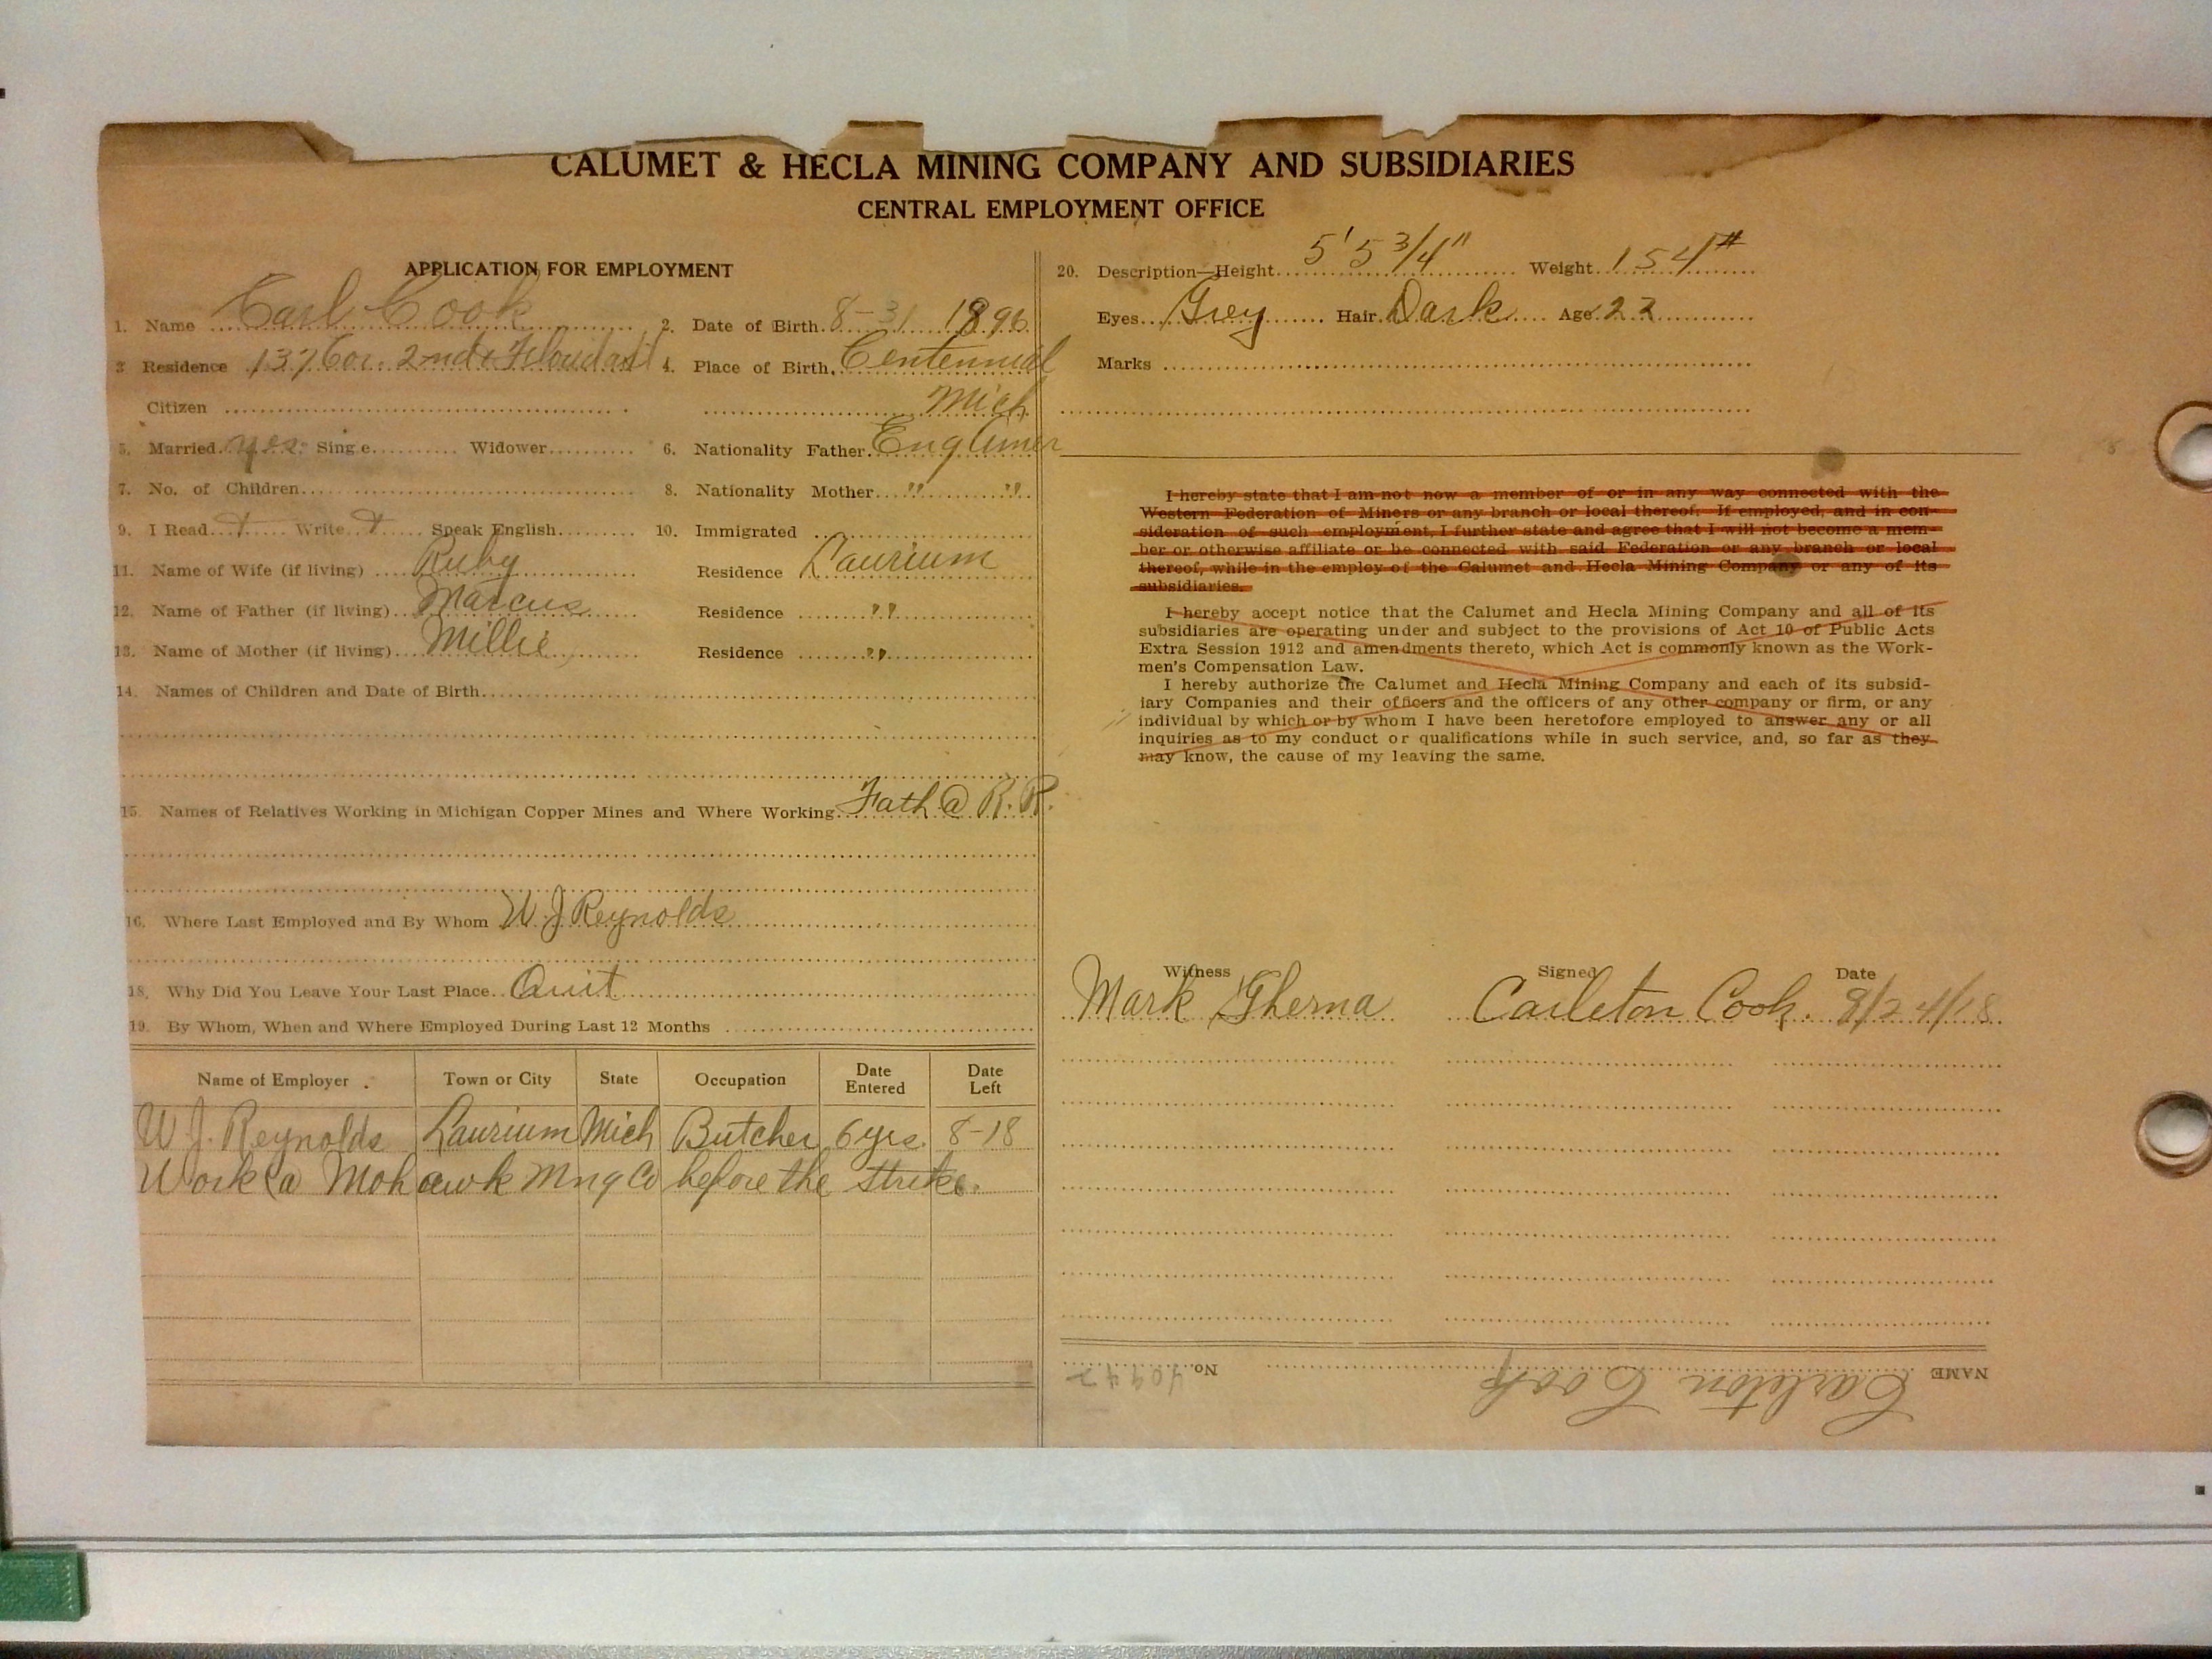 CALUMET & HECLA MINING COMPANY AND SUBSIDIARIES
CENTRAL EMPLOYMENT OFFICE
APPLICATION FOR EMPLOYMENT
1. Name Carl Cook 2. Date of Birth. 8-31 1896
3 Residence 137 Cor. 2nd & 4. Place of Birth. Centennial
Citizen Mich
5. Married. yes. Sing e. Widower
6. Nationality Father. Eng
7. No. of Children 8. Nationality Mother " "
9. I Read Write Speak English 10. Immigrated
11. Name of Wife (if living) Ruby Residence Laurium
12. Name of Father (if living) Marcus Residence "
13. Name of Mother (if living) Millie Residence "
14. Names of Children and Date of Birth
15. Names of Relatives Working in Michigan Copper Mines and Where Working. Fath @ R. R.
16. Where Last Employed and By Whom W. J. Reynolds
18. Why Did You Leave Your Last Place. Quit
19. By Whom, When and Where Employed During Last 12 Months
Name of Employer . Town or City State Occupation Date Entered Date Left
W J. Reynolds Laurium Mich Butcher 6 yrs. 8-18
Work @ Mohawk Mng Co before the strike.
20. Description—Height 5' 5 3/4" Weight 154#
Eyes Grey Hair Dark Age 22
Marks
I hereby state that I am not now a member of or in any way connected with the
Western Federation of Miners or any branch or local thereof. If employed, and in con-
sideration of such employment, I further state and agree that I will not become a mem-
ber or otherwise affiliate or be connected with said Federation or any branch or local
thereof, while in the employ of the Calumet and Hecla Mining Company or any of its
subsidiaries.
I hereby accept notice that the Calumet and Hecla Mining Company and all of its
subsidiaries are operating under and subject to the provisions of Act 10 of Public Acts
Extra Session 1912 and amendments thereto, which Act is commonly known as the Work-
men's Compensation Law.
I hereby authorize the Calumet and Hecla Mining Company and each of its subsid-
iary Companies and their officers and the officers of any other company or firm, or any
individual by which or by whom I have been heretofore employed to answer any or all
inquiries as to my conduct or qualifications while in such service, and, so far as they
may know, the cause of my leaving the same.
Witness Signed Date
Mark Gherna Carleton Cook. 8/24/18
NAME Carleton Cook No.